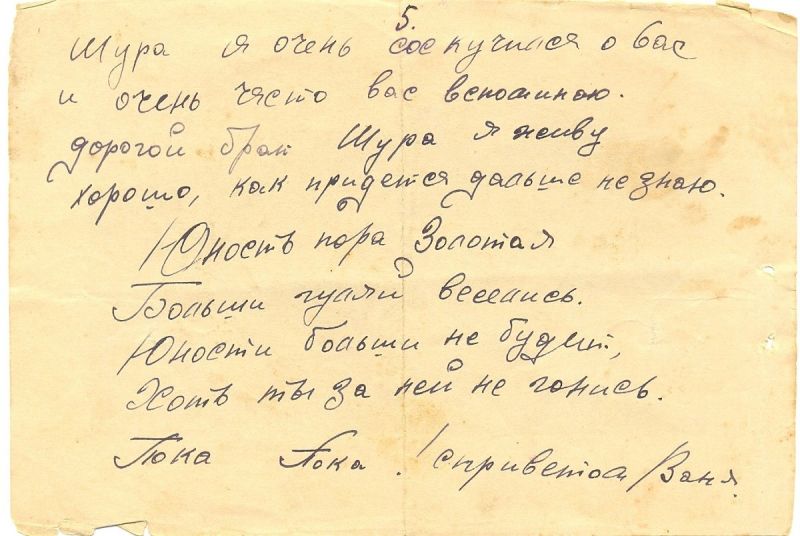 5.
Шура я очень соскучился о вас
и очень часто вас вспоминаю.
дорогой брат Шура я живу
хорошо, как придется дальше не знаю.
Юность пора Золотая
Больши гуляй веселись.
Юности больши не будет,
Хоть ты за ней не гонись.
Пока Пока! с приветом Ваня.